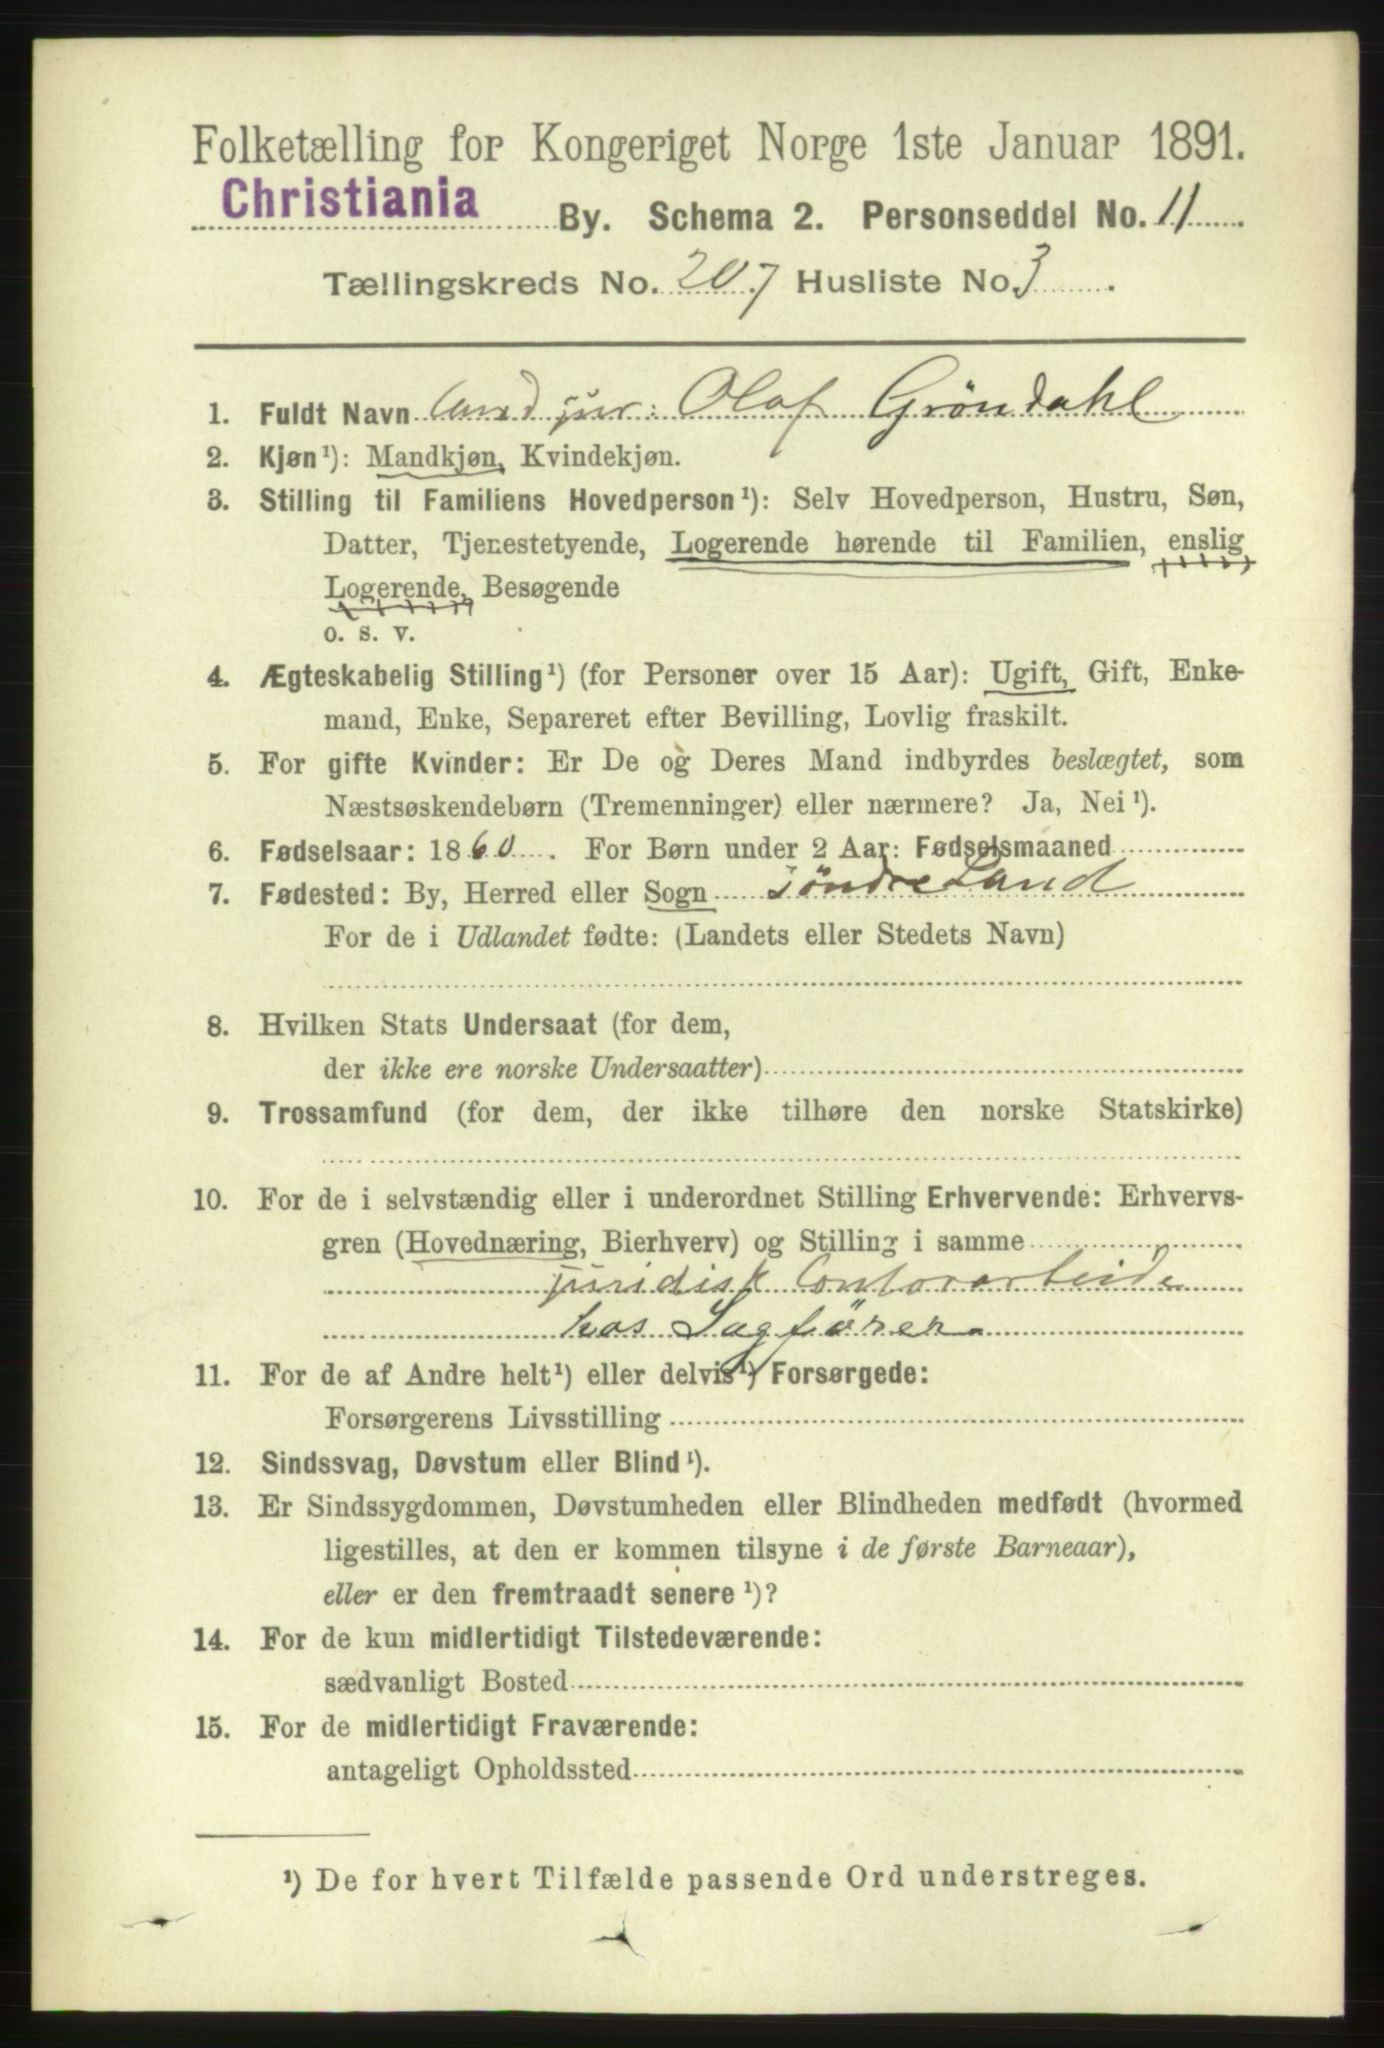 Folketælling for Kongeriget Norge 1ste Januar 1891.
Christiania By. Schema 2. Personseddel No. 11.
Tællingskreds No. 207 Husliste No. 3.
1. Fuldt Navn Cand jur: Olaf Gröndahl
2. Kjøn¹): Mandkjøn, Kvindekjøn.
3. Stilling til Familiens Hovedperson¹): Selv Hovedperson, Hustru, Søn,
Datter, Tjenestetyende, Logerende hørende til Familien, enslig
Logerende, Besøgende
o. s. v.
4. Ægteskabelig Stilling¹) (for Personer over 15 Aar): Ugift, Gift, Enke-
mand, Enke, Separeret efter Bevilling, Lovlig fraskilt.
5. For gifte Kvinder: Er De og Deres Mand indbyrdes beslægtet, som
Næstsøskendebørn (Tremenninger) eller nærmere? Ja, Nei¹).
6. Fødselsaar: 1860. For Børn under 2 Aar: Fødselsmaaned
7. Fødested: By, Herred eller Sogn söndre Land
For de i Udlandet fødte: (Landets eller Stedets Navn)
8. Hvilken Stats Undersaat (for dem,
der ikke ere norske Undersaatter)
9. Trossamfund (for dem, der ikke tilhøre den norske Statskirke)
10. For de i selvstændig eller i underordnet Stilling Erhvervende: Erhvervs-
gren (Hovednæring, Bierhverv) og Stilling i samme
juridisk Contorarbeide
hos Sagfører
11. For de af Andre helt¹) eller delvis¹) Forsørgede:
Forsørgerens Livsstilling
12. Sindssvag, Døvstum eller Blind¹).
13. Er Sindssygdommen, Døvstumheden eller Blindheden medfødt (hvormed
ligestilles, at den er kommen tilsyne i de første Barneaar),
eller er den fremtraadt senere¹)?
14. For de kun midlertidigt Tilstedeværende:
sædvanligt Bosted
15. For de midlertidigt Fraværende:
antageligt Opholdssted
¹) De for hvert Tilfælde passende Ord understreges.